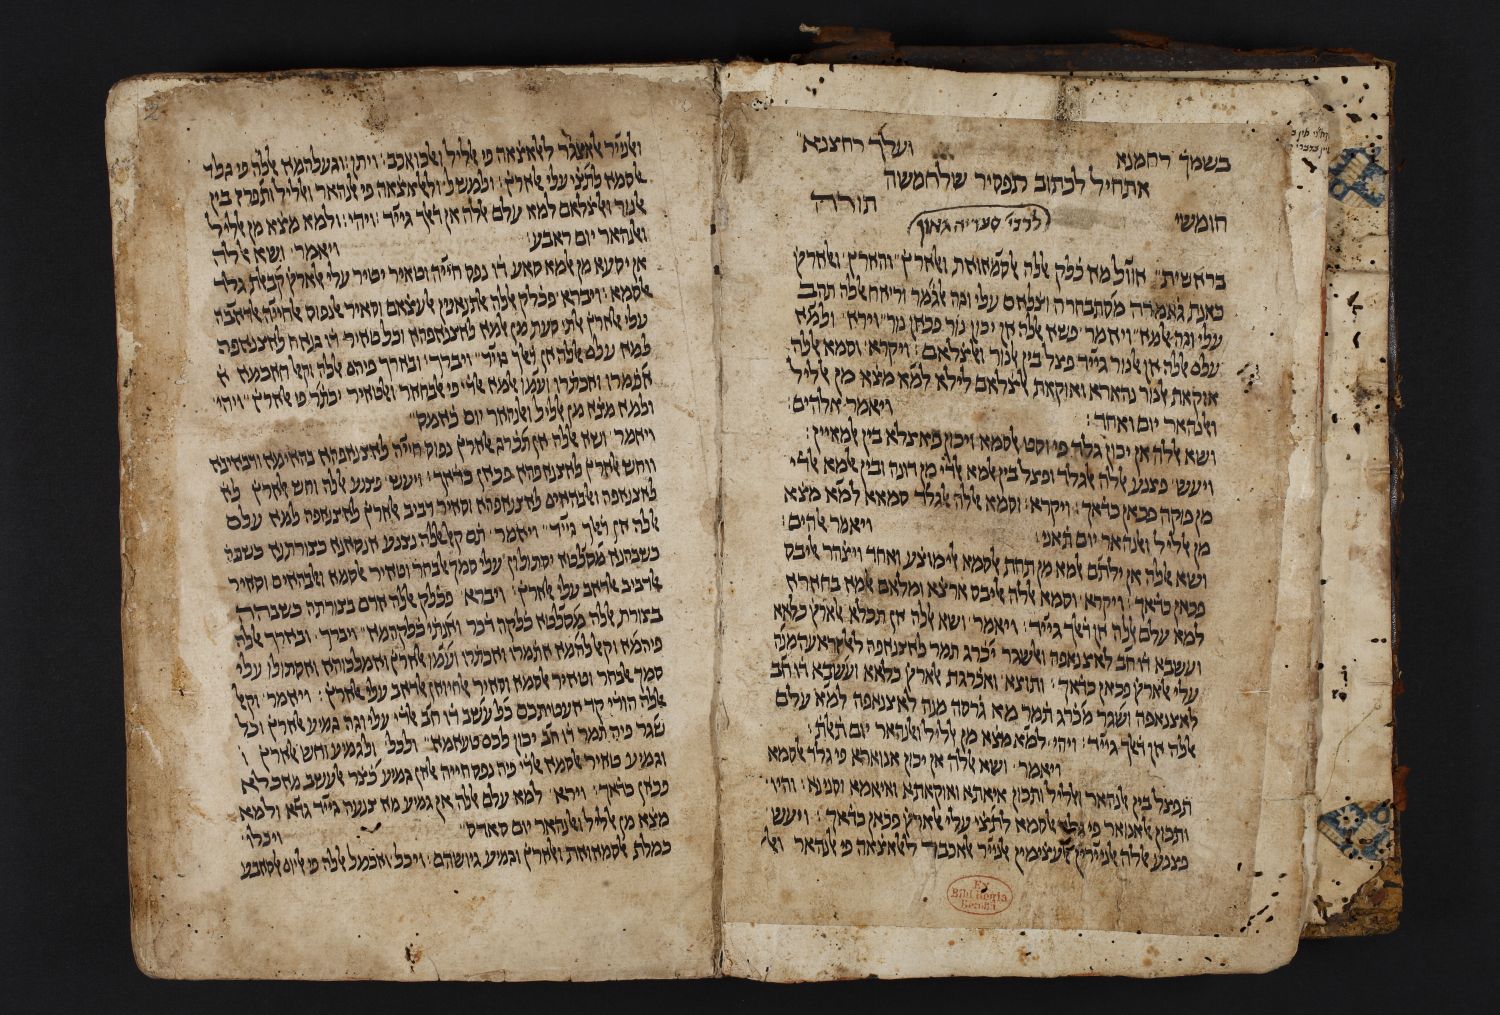 בשמך רחמנא ועלך רחצנא
אתחיל לכתוב תפסיר אלחמשה
חומשי תורה
לרבי סעדיה גאון
בראשית אוול מא כלק אללה אלסמאואת ואלארץ והארץ ואלארץ
כאנת גאמרה מסתבחרה וצלאם עלי וגה אלגמר וריאח אללה תהב
עלי וגה אלמא ויאמר פשא אללה אן יכון נור פכאן נור וירא ולמא
עלם אללה אן אלנור גייד פצל בין אלנור ואלצלאם ויקרא וסמא אללה
אוקאת אלנור נהארא ואוקאת אלצלאם לילא למא מצא מן אלליל
ואלנהאר יום ואחד ויאמר אלהים
ושא אללה אן יכון גלד פי וסט אלסמא ויכון פאצלא בין אלמאיין
ויעש פצנע אללה אלגלד ופצל בין אלמא אלדי מן דונה ובין אלמא אלדי
מן פוקה פכאן כדאך ויקרא וסמא אללה אלגלד סמאא למא מצא
מן אלליל ואלנהאר יום תאני ויאמר אלהים
ושא אללה אן ילתם אלמא מן תחת אלסמא אלי מוצע ואחד ויצהר אליבס
פכאן כדאך ויקרא וסמא אללה אליבס ארצא ומלאם אלמא בחארא
למא עלם אללה אן דלך גייד ויאמר ושא אללה אן תכלא אלארץ כלאא
ועשבא דו חב לאצנאפה ואלשגר יכרג תמר לאצנאפה
עלי אלארץ פכאן כדאך ותוצא ואכרגת אלארץ כלאא ועשבא דו חב
לאצנאפה ושגר מכרג תמר מא גרסה מנה לאצנאפה למא עלם
אללה אן דלך גייד ויהי למא מצא מן אלליל ואלנהאר יום תאלת
ויאמר ושא אללה אן יכון אנוארא פי גלד אלסמא
תפצל בין אלנהאר ואלליל ותכון איאתא ואוקאתא ואיאמא וסנינא והיו
ותכון אלאנואר פי גלד אלסמא לתצי עלי אלארץ פכאן כדאך ויעש
פצנע אללה אלניירין אלעצימין אלנייר אלאכבר לאלאצאה פי אלנהאר
Ex Biblioth
ואלנייר אלאצגר לאלאצאה פי אלליל ואלכואכב ויתן וגעלהמא אללה פי גלד
אלסמא לתצי עלי אלארץ ולמשל ולאלאצאה פי אלנהאר ואלליל ותפרץ בין
אלנור ואלצלאם למא עלם אללה אן דלך גייד ויהי ולמא מצא מן אלליל
ואלנהאר יום ראבע ויאמר ושא אללה
אן יסעא מן אלמא סאע דו נפס חייה וטאיר יטיר עלי אלארץ קבאלת גלד
אלסמא ויברא פכלק אללה אלתנאנין אלעצאם וסאיר אלנפוס אלחייה אלדאבה
עלי אלארץ אלתי סעת מן אלמא לאצנאפהא וכל טאיר דו גנאח לאצנאפה
למא עלם אללה אן דלך גייד ויברך ובארך פיהם אללה וקאל
אתמרו ואכתרו ועמו אלמא אלדי פי אלבחאר ואלטאיר יכתר פי אלארץ ויהי
ולמא מצא מן אלליל ואלנהאר יום כאמס
ויאמר ושא אללה אן תכרג אלארץ נפוס חייה לאצנאפהא
ווחש אלארץ לאצנאפהא פכאן כדאך ויעש פצנע אללה וחש אלארץ
לאצנאפה ואלבהאים לאצנאפהא וסאיר דביב אלארץ לאצנאפה למא עלם
אללה אן דלך גייד ויאמר תם קאל אללה נצנע אנסאנא בצורתנא כשבה
כשבהנא מסלטא יסתולון עלי סמך אלבחר וטאיר אלסמא ואלבהאים וסאיר
אלדביב אלדאב עלי אלארץ ויברא פכלק אללה אדם בצורתה כשבהה
בצורת אללה מסלטא כלקה דכר ואנתי כלקהמא ויברך ובארך אללה
פיהמא וקאל להמא אתמרו ואכתרו ועמו אלארץ ואמלכוהא ואסתולו עלי
סמך אלבחר וטאיר אלסמא וסאיר אלחיואן אלדאב עלי אלארץ ויאמר וקאל
אללה הודי קד אעטיתכם כל עשב דו חב אלדי עלי וגה גמיע אלארץ וכל
שגר פיה תמר דו חב יכון לכם טעאמא ולכל ולגמיע וחש אלארץ
וגמיע טאיר אלסמא אלדי פיה נפס חייה
פכאן כדאך וירא למא עלם אללה אן גמיע מא צנעה גייד גדא ולמא
מצא מן אלליל ואלנהאר יום סאדס ויכלו
כמלת אלסמאואת ואלארץ וגמיע גיושהם ויכל ואכמל אללה פי אליום אלסאבע